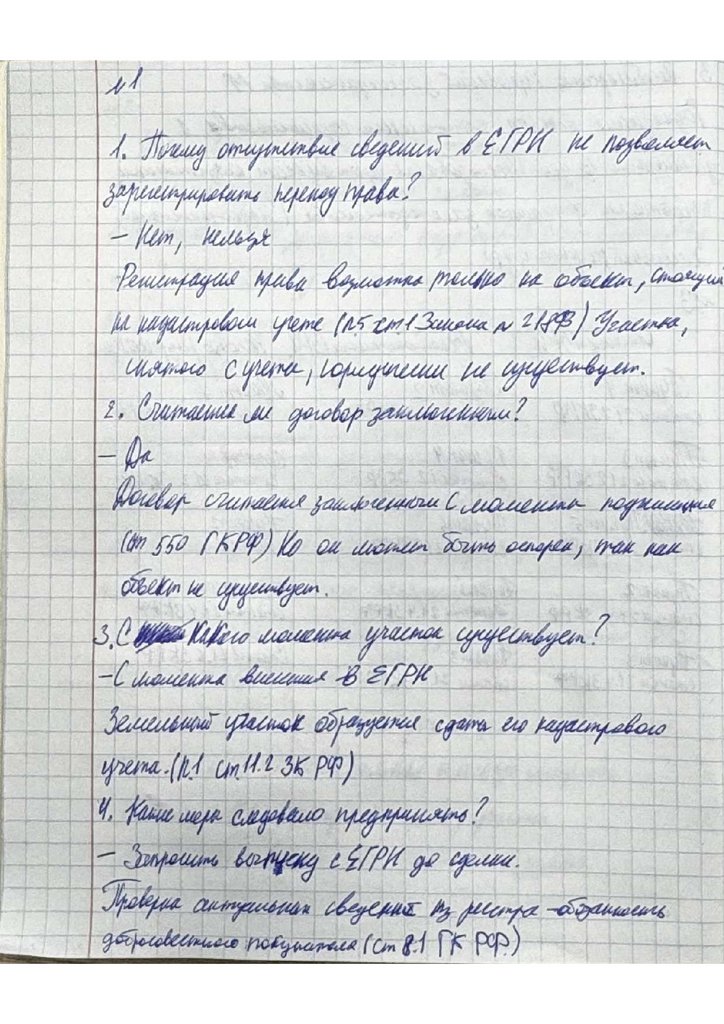 №1
1. Почему отсутствие сведений в ЕГРН не позволяет
зарегистрировать переход права?
– Нет, нельзя
Регистрация права возможна только на объекты, стоящий
на кадастровом учете (п.5 ст1 Закона № 218ФЗ) Участка,
снятого с учета, юридически не существует.
2. Считается ли договор заключенным?
– Да
Договор считается заключенным с момента подписания
(ст 550 ГК РФ) Но он может быть оспорен, так как
объект не существует.
3. С какого момента участок существует?
– С момента внесения в ЕГРН
Земельный участок образуется с даты его кадастрового
учета. (п.1 ст.11.2 ЗК РФ)
4. Какие меры следовало предпринять?
– Запросить выписку с ЕГРН до сделки.
Проверка актуальных сведений из реестра – обязанность
добросовестного покупателя (ст 8.1 ГК РФ.)